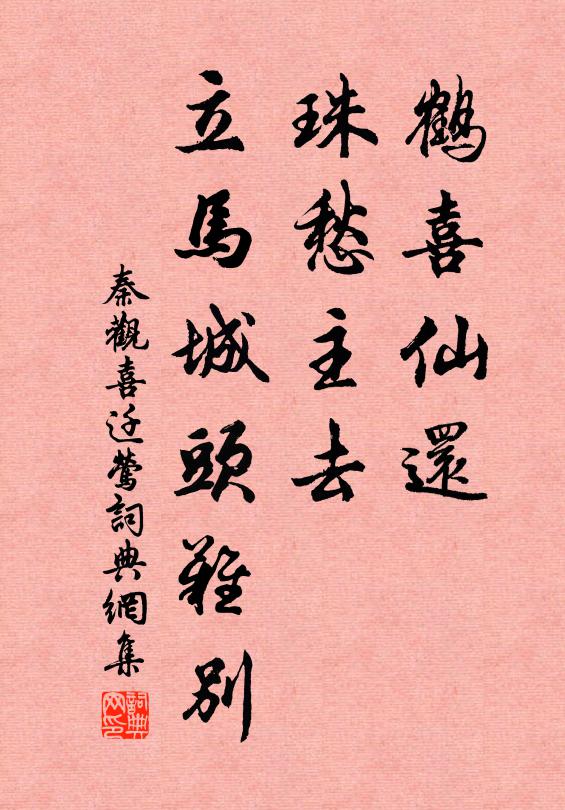 鶴喜仙還
珠愁主去
立馬城頭難別
秦觀喜迁鶯詞典網集
詞典网印